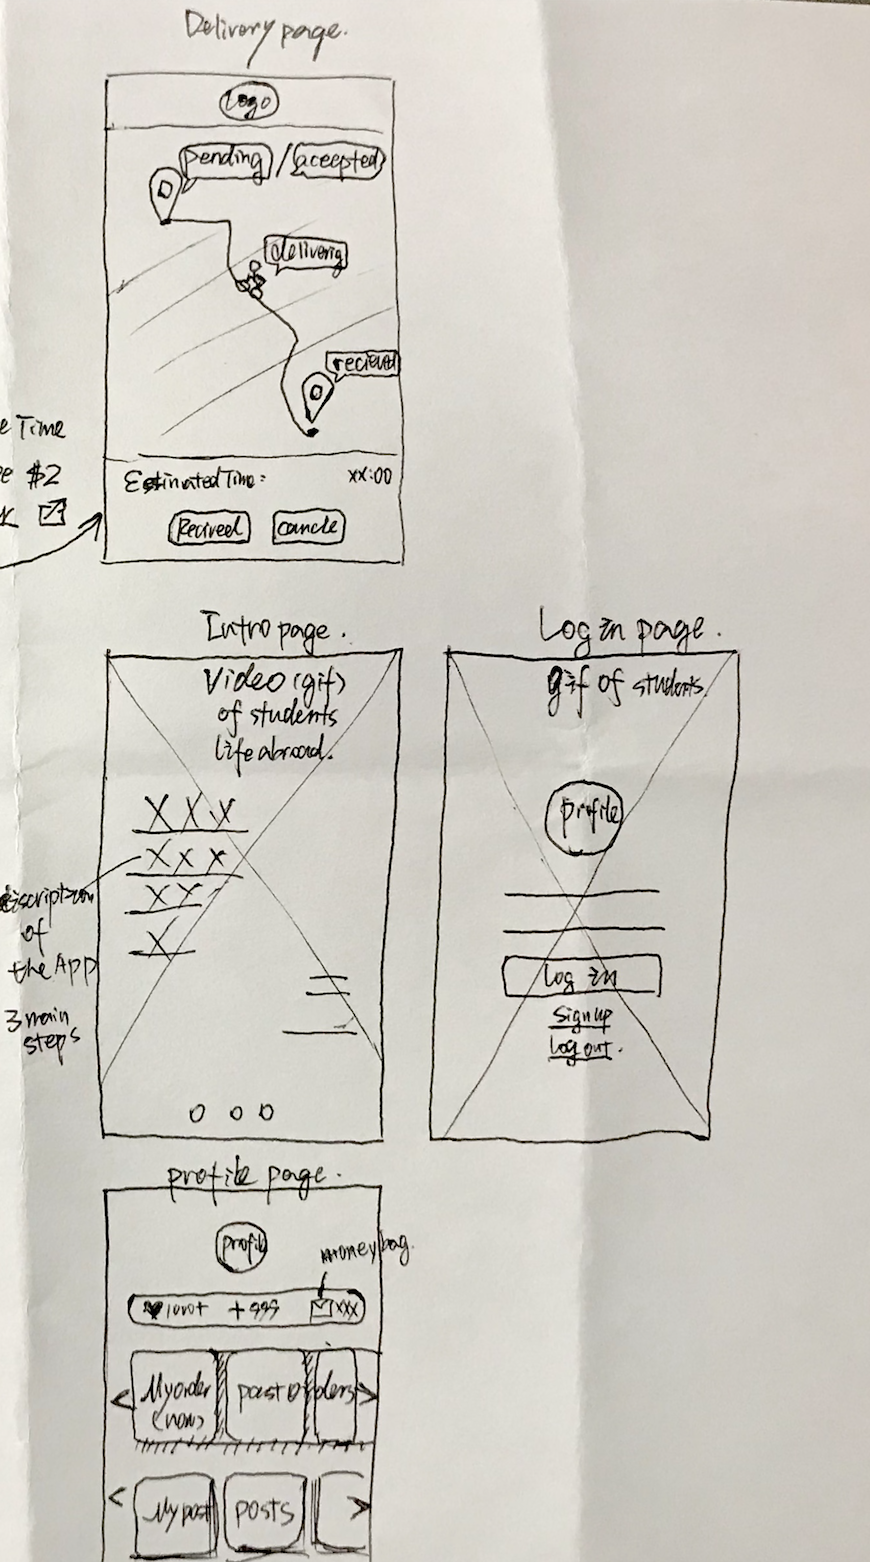 Delivery page.
Logo
pending / aceepted
deliverig
recieved
e Time
e $2
Estimated Time: xx:00
Recived cancle
Intro page.
Video (gif)
of students
life abroad.
X X X
X X X
X X
X
discription
of
the App
3 main
steps
Log in page.
gif of students.
profile
Log in
Sign up
Log out.
profile page.
profile
money bag.
100+ +999 xxx
My order
(now)
past orders
My post
posts